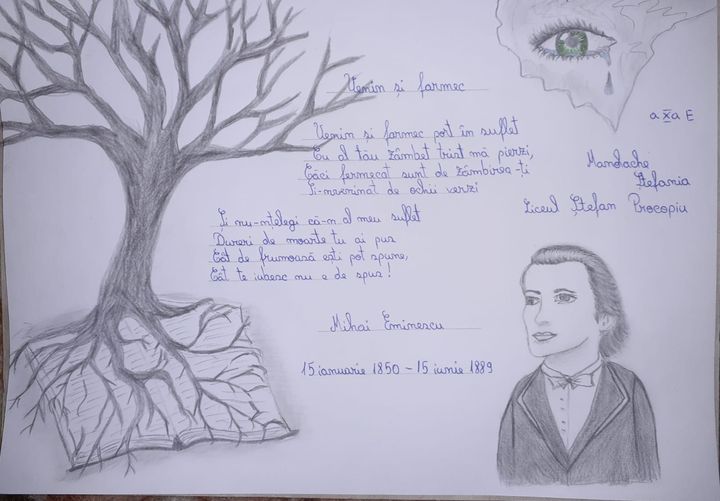 Venin și farmec
Venin si farmec port în suflet
Cu al tău zâmbet trist mă pierzi,
Căci fermecat sunt de zâmbirea-ți
Și-nveninat de ochii verzi
Și nu-nțelegi că-n al meu suflet
Dureri de moarte tu ai pus
Cât de frumoasă ești pot spune,
Cât te iubesc nu e de spus!
Mihai Eminescu
15 ianuarie 1850 - 15 iunie 1889
a X a E
Mandache
Ștefania
Liceul Ștefan Procopiu